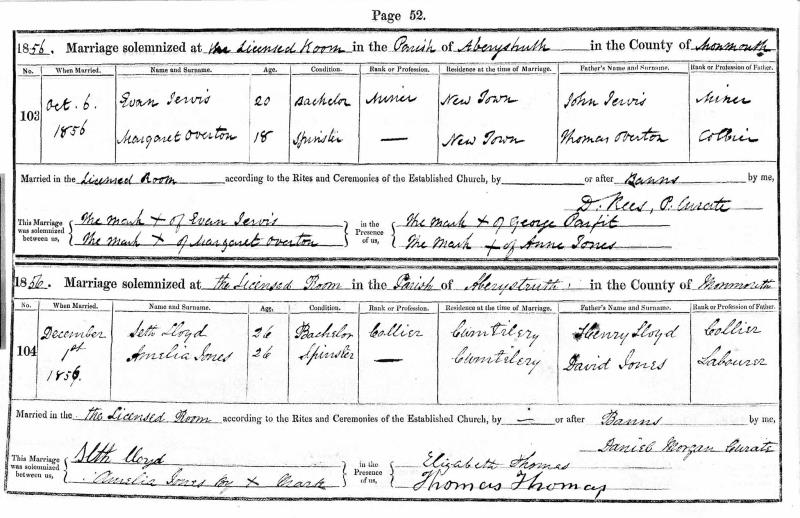 Page 52.
1856. Marriage solemnized at the Licensed Room in the Parish of Aberystruth in the County of Monmouth
No. When Married. Name and Surname. Age. Condition. Rank or Profession. Residence at the time of Marriage. Father's Name and Surname. Rank or Profession of Father.
103 Oct. 6. 1856 Evan Jervis 20 Bachelor Miner New Town John Jervis Miner
Margaret Overton 18 Spinster — New Town Thomas Overton Collier
Married in the Licensed Room according to the Rites and Ceremonies of the Established Church, by or after Banns by me,
D. Rees, P. Curate
This Marriage was solemnized between us, The mark + of Evan Jervis in the Presence of us, The mark + of George Parfit
The mark + of Margaret Overton The mark + of Anne Jones
1856. Marriage solemnized at the Licensed Room in the Parish of Aberystruth in the County of Monmouth
No. When Married. Name and Surname. Age. Condition. Rank or Profession. Residence at the time of Marriage. Father's Name and Surname. Rank or Profession of Father.
104 December 1st 1856. Seth Lloyd 26 Bachelor Collier Cwmtilery Henry Lloyd Collier
Amelia Jones 26 Spinster — Cwmtilery David Jones Labourer
Married in the the Licensed Room according to the Rites and Ceremonies of the Established Church, by — or after Banns by me,
Daniel Morgan Curate
This Marriage was solemnized between us, Seth Lloyd in the Presence of us, Elizabeth Thomas
Amelia Jones by + Mark Thomas Thomas